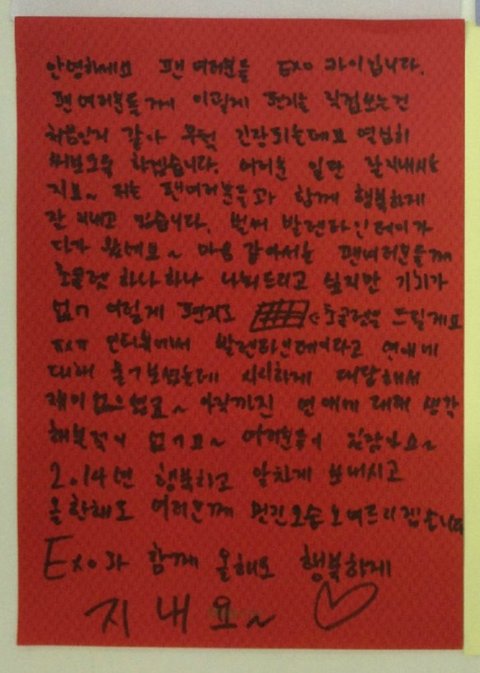 안녕하세요 팬 여러분들 EXO 카이입니다.
팬 여러분들께 이렇게 편지를 직접쓰는건
처음인거 같아 무척 긴장되는데요 열심히
써보도록 하겠습니다. 여러분 일단 잘지내시는
지요~ 저는 팬여러분들과 함께 행복하게
잘 지내고 있습니다. 벌써 발렌타인데이가
다가 왔네요~ 마음 같아서는 팬여러분들께
초콜렛 하나하나 나눠드리고 싶지만 기회가
없기 이렇게 편지로 초콜렛을 드릴게요
인터뷰에서 발렌타인데이라고 연애에
대해 물어보셨는데 시시하게 대답해서
재미없으셨죠~ 아직까진 연애에 대해 생각
해본적이 없거요~ 여러분들이 있잖아요~
2014년 행복하고 알차게 보내시고
올한해도 여러분께 멋진모습 보여드리겠습니다
EXO와 함께 올해도 행복하게
지내요~ ♡